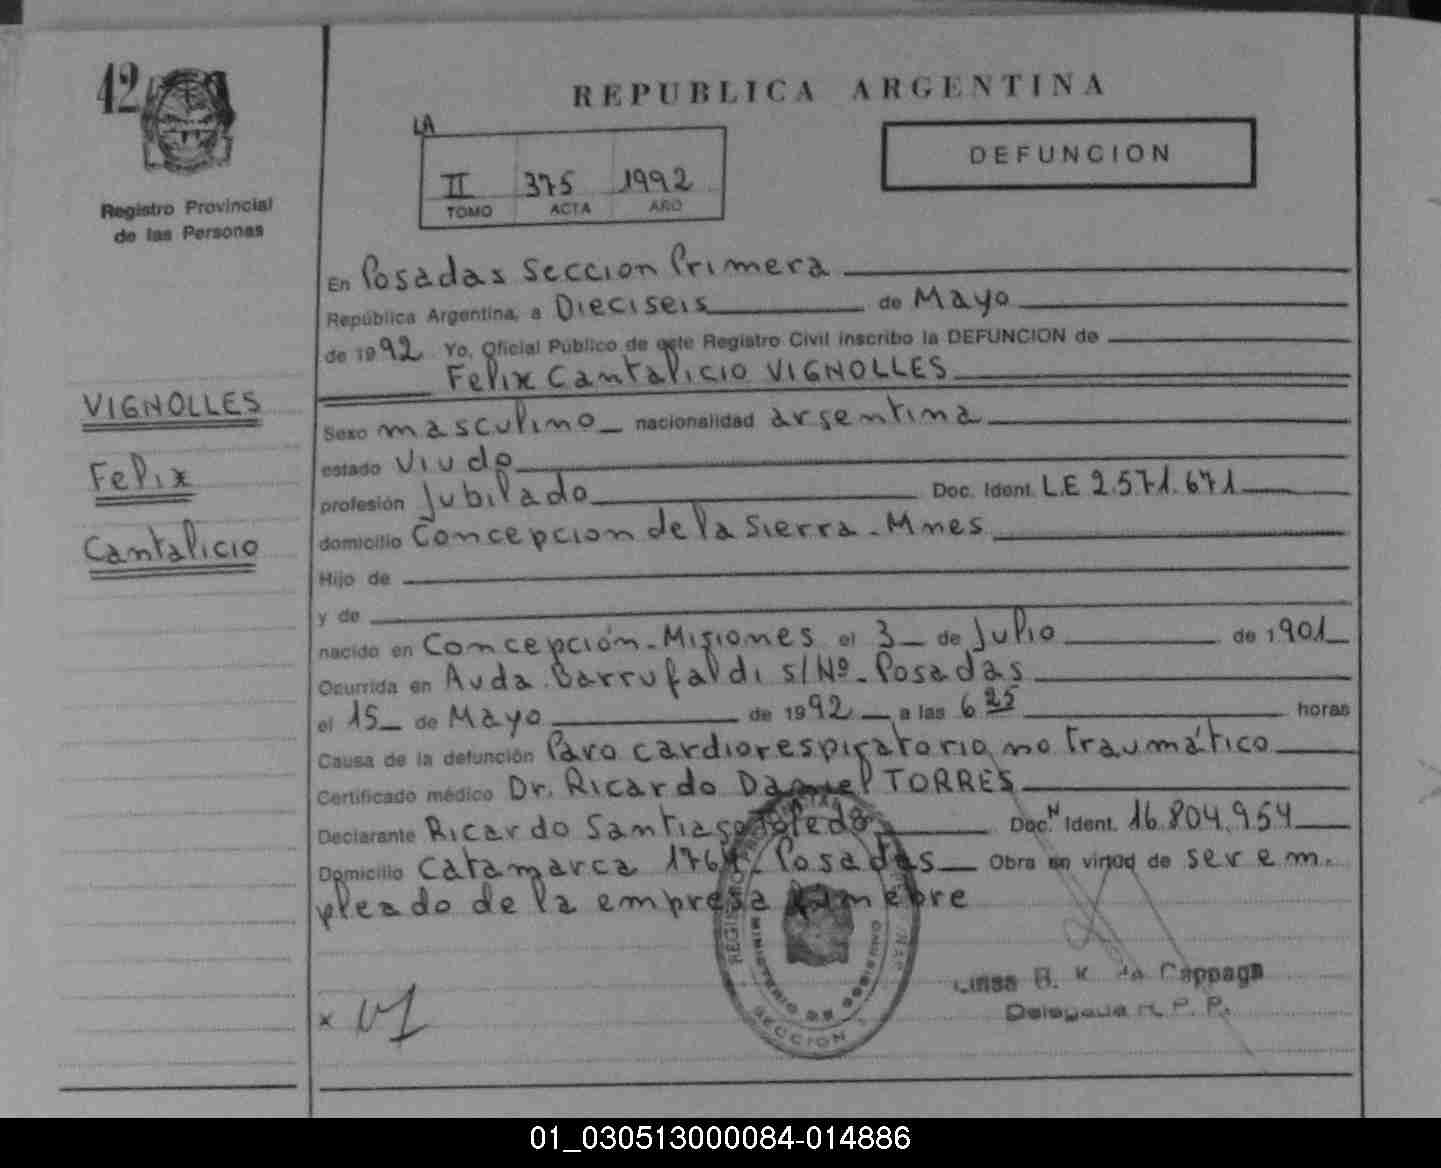 42
Registro Provincial
de las Personas
VIGNOLLES
Felix
Cantalicio
REPUBLICA ARGENTINA
LA
II 375 1992
TOMO ACTA AÑO
DEFUNCION
En Posadas Seccion Primera
República Argentina, a Dieciseis de Mayo
de 1992 Yo, Oficial Público de este Registro Civil inscribo la DEFUNCION de
Felix Cantalicio VIGNOLLES
Sexo masculino nacionalidad argentina
estado Viudo
profesión Jubilado Doc. Ident. L.E 2.571.671
domicilio Concepcion de la Sierra - Mnes
Hijo de
y de
nacido en Concepción - Misiones el 3 de Julio de 1901
Ocurrida en Avda. Barrufaldi s/Nº - Posadas
el 15 de Mayo de 1992 a las 6 25 horas
Causa de la defunción Paro cardiorespiratorio no traumático
Certificado médico Dr. Ricardo Daniel TORRES
Declarante Ricardo Santiago Toledo Doc. N Ident. 16.804.954
Domicilio Catamarca Posadas Obra en virtud de ser em-
pleado de la empresa funebre
MINISTERIO DE GOBIERNO
SECCION
de Cappaga
Delegada R. P. P.
01_030513000084-014886